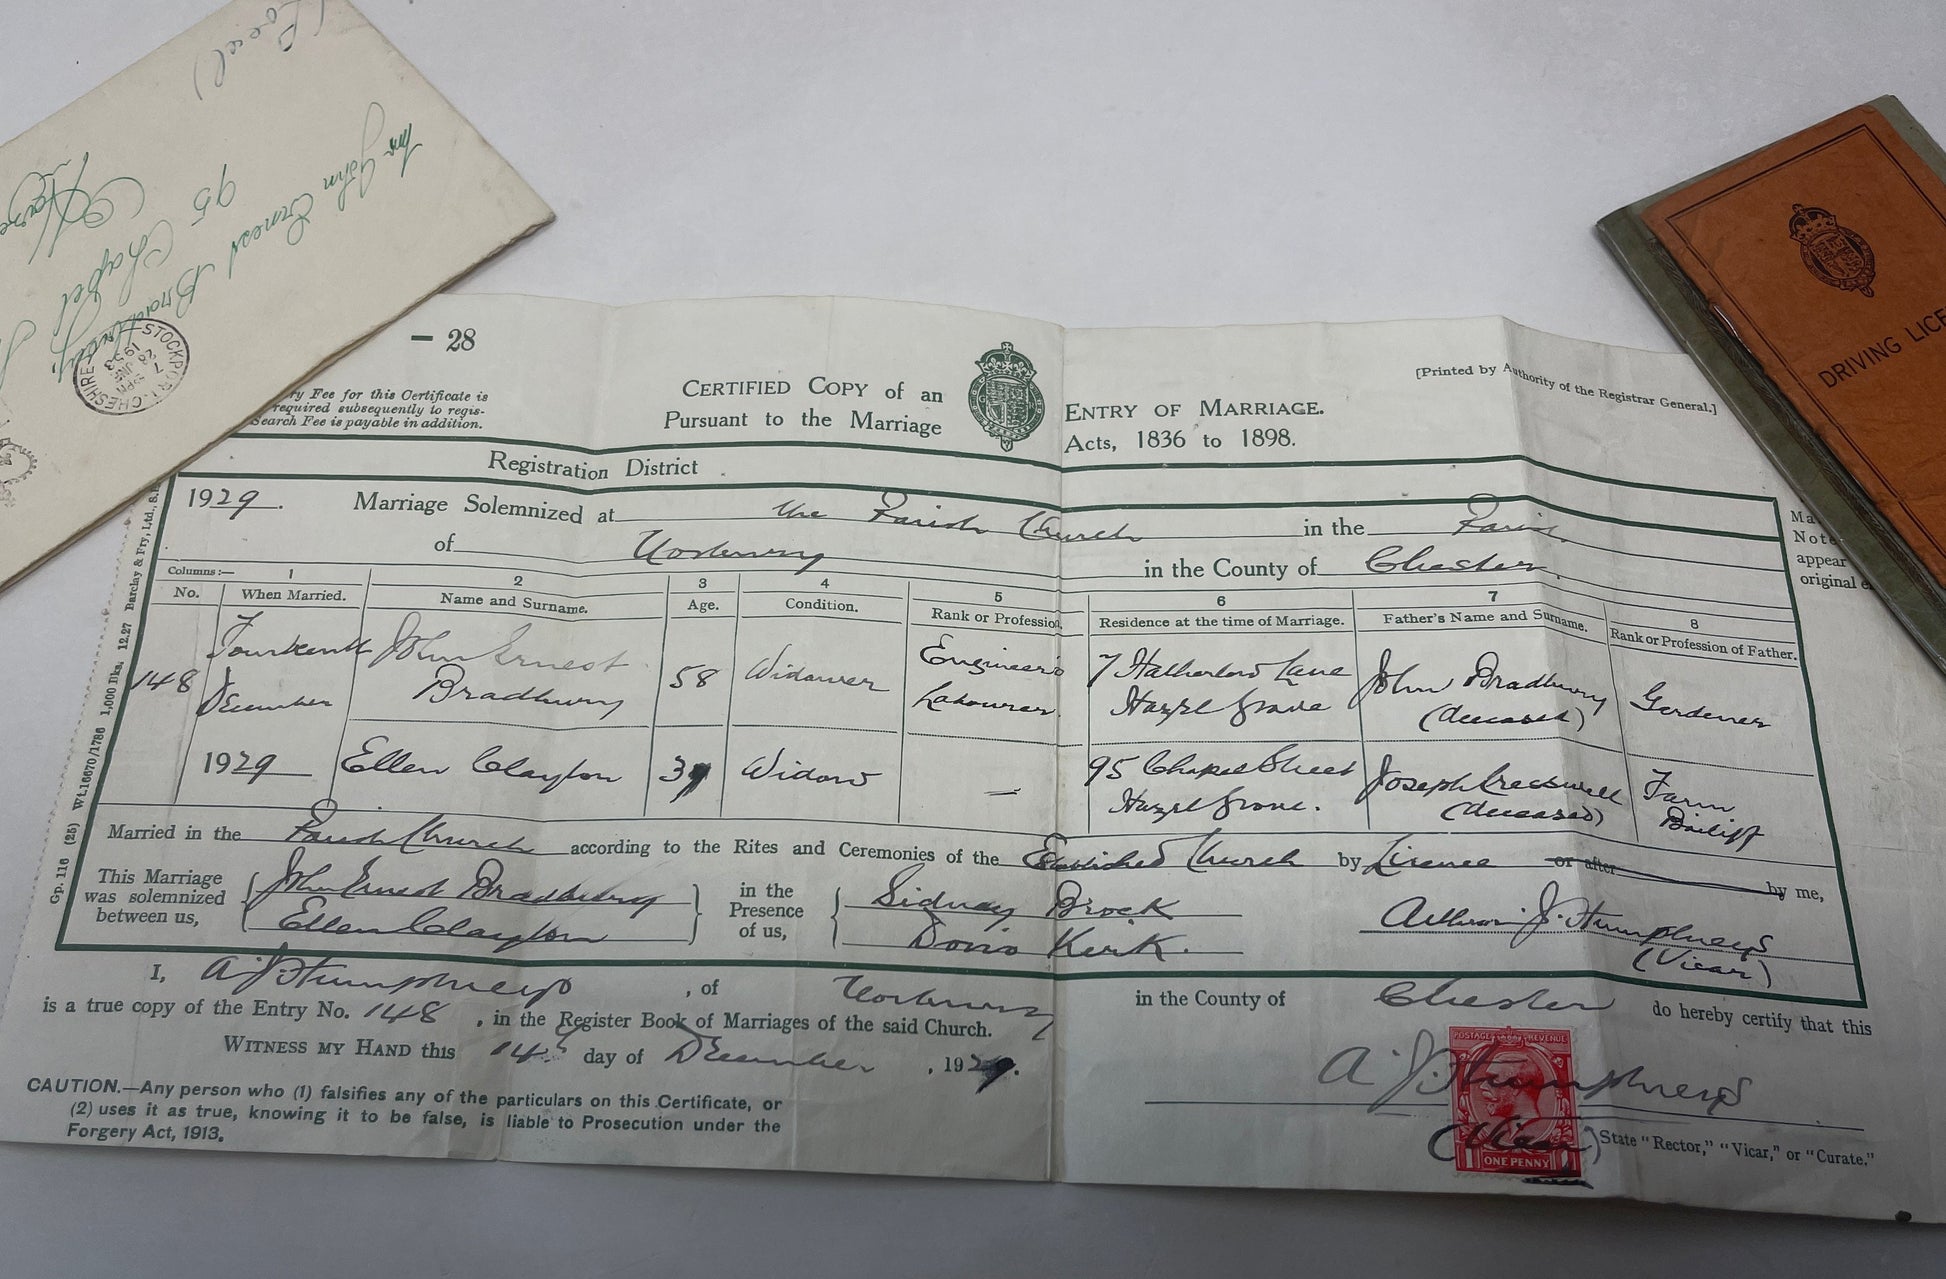 (Local)
Mr John Ernest Bradbury.
95 Chapel
Haze
STOCKPORT. CHESHIRE
7
28 JNE
1953
DRIVING LICE
– 28
[Printed by Authority of the Registrar General.]
ry Fee for this Certificate is
required subsequently to regis-
Search Fee is payable in addition.
CERTIFIED COPY of an ENTRY OF MARRIAGE.
Pursuant to the Marriage Acts, 1836 to 1898.
Registration District
1929. Marriage Solemnized at the Parish Church in the Parish
of Norbury in the County of Chester.
Columns:— 1 2 3 4 5 6 7 8
No. When Married. Name and Surname. Age. Condition. Rank or Profession. Residence at the time of Marriage. Father's Name and Surname. Rank or Profession of Father.
148 Fourteenth December 1929
John Ernest Bradbury 58 Widower Engineer's Labourer 7 Hatherlow Lane Hazel Grove John Bradbury (deceased) Gardener
Ellen Clayton 39 Widow — 95 Chapel Street Hazel Grove. Joseph Cresswell (deceased) Farm Bailiff
Married in the Parish Church according to the Rites and Ceremonies of the Established Church by Licence or after by me,
This Marriage was solemnized between us, John Ernest Bradbury Ellen Clayton in the Presence of us, Sidney Brock Doris Kirk. Arthur J. Humphreys (Vicar)
I, A J Humphreys, of Norbury in the County of Chester do hereby certify that this
is a true copy of the Entry No. 148, in the Register Book of Marriages of the said Church.
WITNESS MY HAND this 14th day of December, 1929.
A J Humphreys
(Vicar) State "Rector," "Vicar," or "Curate."
POSTAGE REVENUE
1 ONE PENNY 1
CAUTION.—Any person who (1) falsifies any of the particulars on this Certificate, or
(2) uses it as true, knowing it to be false, is liable to Prosecution under the
Forgery Act, 1913.
Gp. 116 (25) Wt.16670/1786 1,000 Bks. 12.27 Barclay & Fry, Ltd., S.E
Ma
Note
appear
original e